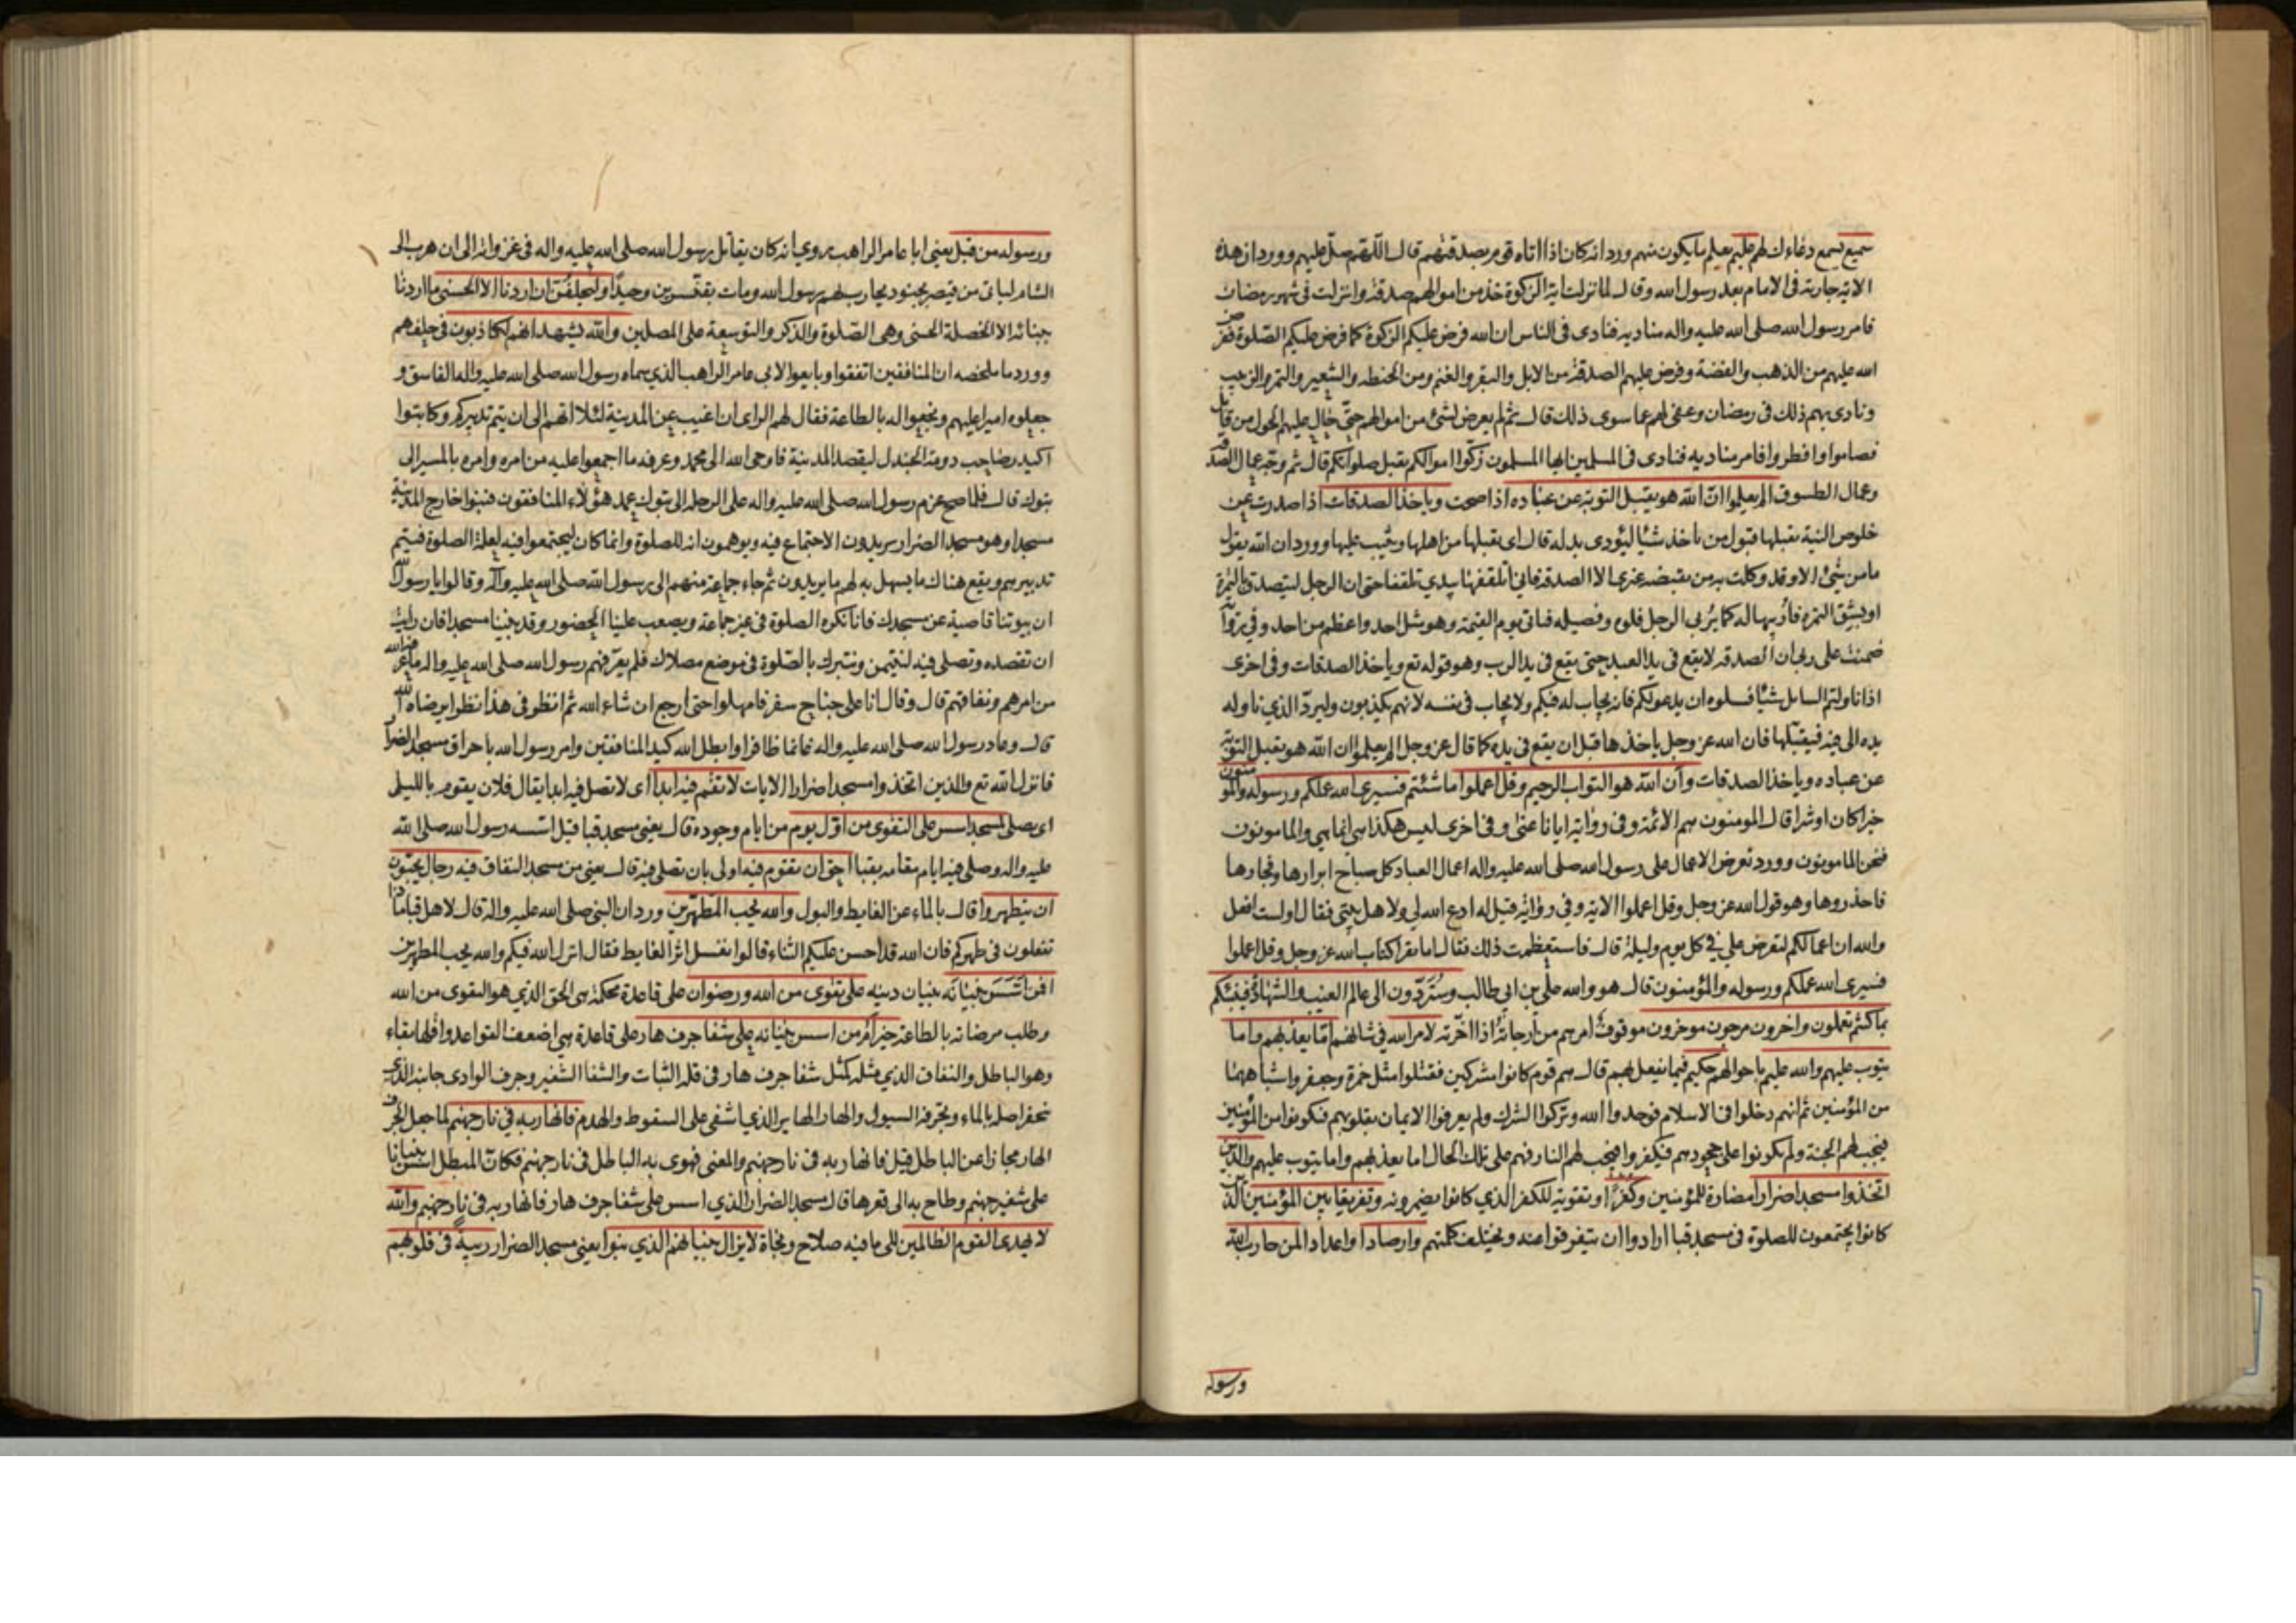 سميع يسمع دعاءك لهم عليم يعلم ما يكون منهم ورد انه كان اذا اتاه قوم بصدقتهم قال اللهم صل عليهم وورد ان هذه
الاية جارية فى الامام بعد رسول الله وقال لما نزلت اية الزكوة خذ من اموالهم صدقة وانزلت فى شهر رمضان
فامر رسول الله صلى الله عليه واله مناديه فنادى فى الناس ان الله فرض عليكم الزكوة كما فرض عليكم الصلوة ففرض
الله عليهم من الذهب والفضة وفرض عليهم الصدقة من الابل والبقر والغنم ومن الحنطه والشعير والتمر والزبيب
ونادى بهم ذلك فى رمضان وعفى لهم عما سوى ذلك قال ثم لم يعرض لشئ من اموالهم حتى حال عليهم الحول من قابل
فصاموا وافطروا فامر مناديه فنادى فى المسلمين ايها المسلمون زكوا اموالكم يقبل صلوتكم قال ثم وجه عمال الصدقة
وعمال الطسوق الم يعلموا ان الله هو يقبل التوبة عن عباده اذا صحت وياخذ الصدقات اذا صدرت عن
خلوص النية يقبلها قبول من ياخذ شيئا ليؤدى بدله قال اى يقبلها من اهلها ويثيب عليها وورد ان الله يقول
ما من شئ الا وقد وكلت به من يقبضه غيرى الا الصدقة فانى اتلقفها بيدى تلقفا حتى ان الرجل ليتصدق بالتمرة
او بشق التمرة فاربيها له كما يربى الرجل فلوه وفصيله فياتى يوم القيمة وهو مثل احد واعظم من احد وفى رواية
ضمنت على ربى ان الصدقة لا يقع فى يد العبد حتى يقع فى يد الرب وهو قوله تع وياخذ الصدقات وفى اخرى
اذا ناولتم السايل شيئا فسلوه ان يدعو لكم فانه يجاب له فيكم ولا يجاب فى نفسه لانهم يكذبون وليرد الذى ناوله
يده الى فيه فيقبلها فان الله عز وجل ياخذها قبل ان يقع فى يده كما قال عز وجل الم يعلموا ان الله هو يقبل التوبة
عن عباده وياخذ الصدقات وان الله هو التواب الرحيم وقل اعملوا ما شئتم فسيرى الله عملكم ورسوله والمؤمنون
خيرا كان او شرا قال المومنون هم الائمة وفى رواية ايانا عنى وفى اخرى ليس هكذا هى انما هى والمامونون
فنحن المامونون وورد تعرض الاعمال على رسول الله صلى الله عليه واله اعمال العباد كل صباح ابرارها وفجارها
فاحذروها وهو قول الله عز وجل وقل اعملوا الاية وفى رواية قيل له ادع الله لى ولاهل بيتى فقال اولست افعل
والله ان اعمالكم لتعرض على فى كل يوم وليلة قال فاستعظمت ذلك فقال اما تقرا كتاب الله عز وجل وقل اعملوا
فسيرى الله عملكم ورسوله والمؤمنون قال هو والله على بن ابى طالب وستردون الى عالم الغيب والشهادة فينبئكم
بما كنتم تعملون واخرون مرجون موخرون موقوف امرهم من ارجاته اذا اخرته لامر الله فى شانهم اما يعذبهم واما
يتوب عليهم والله عليم باحوالهم حكيم فيما يفعل بهم قال هم قوم كانوا مشركين فقتلوا مثل حمزة وجعفر واشباههما
من المؤمنين ثم انهم دخلوا فى الاسلام فوحدوا الله وتركوا الشرك ولم يعرفوا الايمان بقلوبهم فيكونوا من المؤمنين
فيجب لهم الجنة ولم يكونوا على جحودهم فيكفروا فيجب لهم النار فهم على تلك الحال اما يعذبهم واما يتوب عليهم والذين
اتخذوا مسجدا ضرارا مضارة للمؤمنين وكفرا وتقوية للكفر الذى كانوا يضمرونه وتفريقا بين المؤمنين الذين
كانوا يجتمعون للصلوة فى مسجد قبا ارادوا ان يتفرقوا عنه ويختلف كلمتهم وارصادا واعدادا لمن حارب الله
ورسوله
ورسوله من قبل يعنى ابا عامر الراهب روى انه كان يقاتل رسول الله صلى الله عليه واله فى غزواته الى ان هرب الى
الشام لياتى من قيصر بجنود يحارب بهم رسول الله ومات بقنسرين وحيدا وليحلفن ان اردنا الا الحسنى ما اردنا
ببنائه الا الخصلة الحسنى وهى الصلوة والذكر والتوسعة على المصلين والله يشهد انهم لكاذبون فى حلفهم
وورد ما ملخصه ان المنافقين اتفقوا وبايعوا لابى عامر الراهب الذى سماه رسول الله صلى الله عليه واله الفاسق و
جعلوه اميرا عليهم ونجعوا له بالطاعة فقال لهم الراى ان اغيب عن المدينة لئلا اتهم الى ان يتم تدبيركم وكاتبوا
اكيدر صاحب دومة الجندل ليقصد المدينة فاوحى الله الى محمد وعرفه ما اجمعوا عليه من امره وامره بالمسير الى
تبوك قال فلما صح عزم رسول الله صلى الله عليه واله على الرحلة الى تبوك عمد هؤلاء المنافقون فبنوا خارج المدينة
مسجدا وهو مسجد الضرار يريدون الاجتماع فيه ويوهمون انه للصلوة وانما كان ليجتمعوا فيه لعلة الصلوة فيتم
تدبيرهم ويقع هناك ما يسهل به لهم ما يريدون ثم جاء جماعة منهم الى رسول الله صلى الله عليه وآله وقالوا يا رسول الله
ان بيوتنا قاصية عن مسجدك فانا نكره الصلوة فى غير جماعة ويصعب علينا الحضور وقد بنينا مسجدا فان رايت
ان تقصده وتصلى فيه لنتيمن ونتبرك بالصلوة فى موضع مصلاك فلم يعرفهم رسول الله صلى الله عليه واله ما عرفه الله
من امرهم ونفاقهم قال وقال انا على جناح سفر فامهلوا حتى ارجع ان شاء الله ثم انظر فى هذا نظرا يرضاه الله
قال وعاد رسول الله صلى الله عليه واله غانما ظافرا وابطل الله كيد المنافقين وامر رسول الله باحراق مسجد الضرار
فانزل الله تع والذين اتخذوا مسجدا ضرارا الايات لا تقم فيه ابدا اى لا تصل فيه ابدا يقال فلان يقوم بالليل
اى يصلى لمسجد اسس على التقوى من اول يوم من ايام وجوده قال يعنى مسجد قبا قيل اسسه رسول الله صلى الله
عليه واله وصلى فيه ايام مقامه بقبا احق ان تقوم فيه اولى بان تصلى فيه قال يعنى من مسجد النفاق فيه رجال يحبون
ان يتطهروا قال بالماء عن الغايط والبول والله يحب المطهرين ورد ان النبى صلى الله عليه واله قال لاهل قبا ماذا
تفعلون فى طهركم فان الله قد احسن عليكم الثناء قالوا نغسل اثر الغايط فقال انزل الله فيكم والله يحب المطهرين
افمن اسس بنيانه بنيان دينه على تقوى من الله ورضوان على قاعدة محكمة هى الحق الذى هو التقوى من الله
وطلب مرضاته بالطاعة خير ام من اسس بنيانه على شفا جرف هار على قاعدة هى اضعف القواعد واقلها بقاء
وهو الباطل والنفاق الذى مثله كمثل شفا جرف هار فى قلة الثبات والشفا الشفير وجرف الوادى جانبه الذى
ينحفر اصله بالماء وتجرفه السيول والهار الهاير الذى اشفى على السقوط والهدم فانهار به فى نار جهنم لما جعل الجرف
الهار مجازا عن الباطل قيل فانهار به فى نار جهنم والمعنى فهوى به الباطل فى نار جهنم فكان المبطل اسس بنيانا
على شفير جهنم وطاح به الى قعرها قال مسجد الضرار الذى اسس على شفا جرف هار فانهار به فى نار جهنم والله
لا يهدى القوم الظالمين الى ما فيه صلاح ونجاة لا يزال بنيانهم الذى بنوا يعنى مسجد الضرار ريبة فى قلوبهم